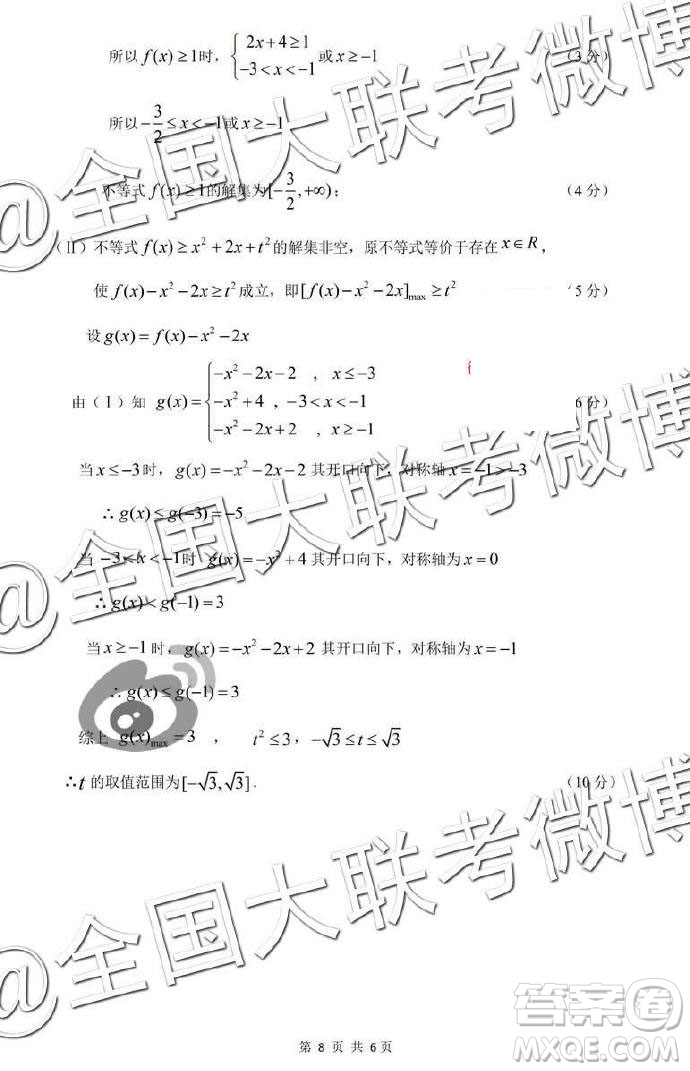 所以 f(x)≥1时, {2x+4≥1 -3<x<-1 或 x≥-1 (3分)
所以 -3/2≤x<-1或x≥-1
不等式 f(x)≥1的解集为[-3/2,+∞); (4分)
(Ⅱ)不等式 f(x)≥x²+2x+t² 的解集非空，原不等式等价于存在 x∈R，
使 f(x)-x²-2x≥t² 成立，即[f(x)-x²-2x]max≥t² (5分)
设 g(x)=f(x)-x²-2x
由（Ⅰ）知 g(x)={-x²-2x-2 , x≤-3
-x²+4 , -3<x<-1 6分)
-x²-2x+2 , x≥-1
当 x≤-3 时，g(x)=-x²-2x-2 其开口向下，对称轴 x=-1>-3
∴g(x)≤g(-3)=-5
当 -3<x<-1时 g(x)=-x²+4 其开口向下，对称轴为 x=0
∴g(x)<g(-1)=3
当 x≥-1 时，g(x)=-x²-2x+2 其开口向下，对称轴为 x=-1
∴g(x)≤g(-1)=3
综上 g(x)max=3 ， t²≤3，-√3≤t≤√3
∴t 的取值范围为[-√3,√3]. (10分)
@全国大联考微博
@全国大联考微博
@全国大联考微博
答案卷
MXQE.COM
第 8 页 共 6 页